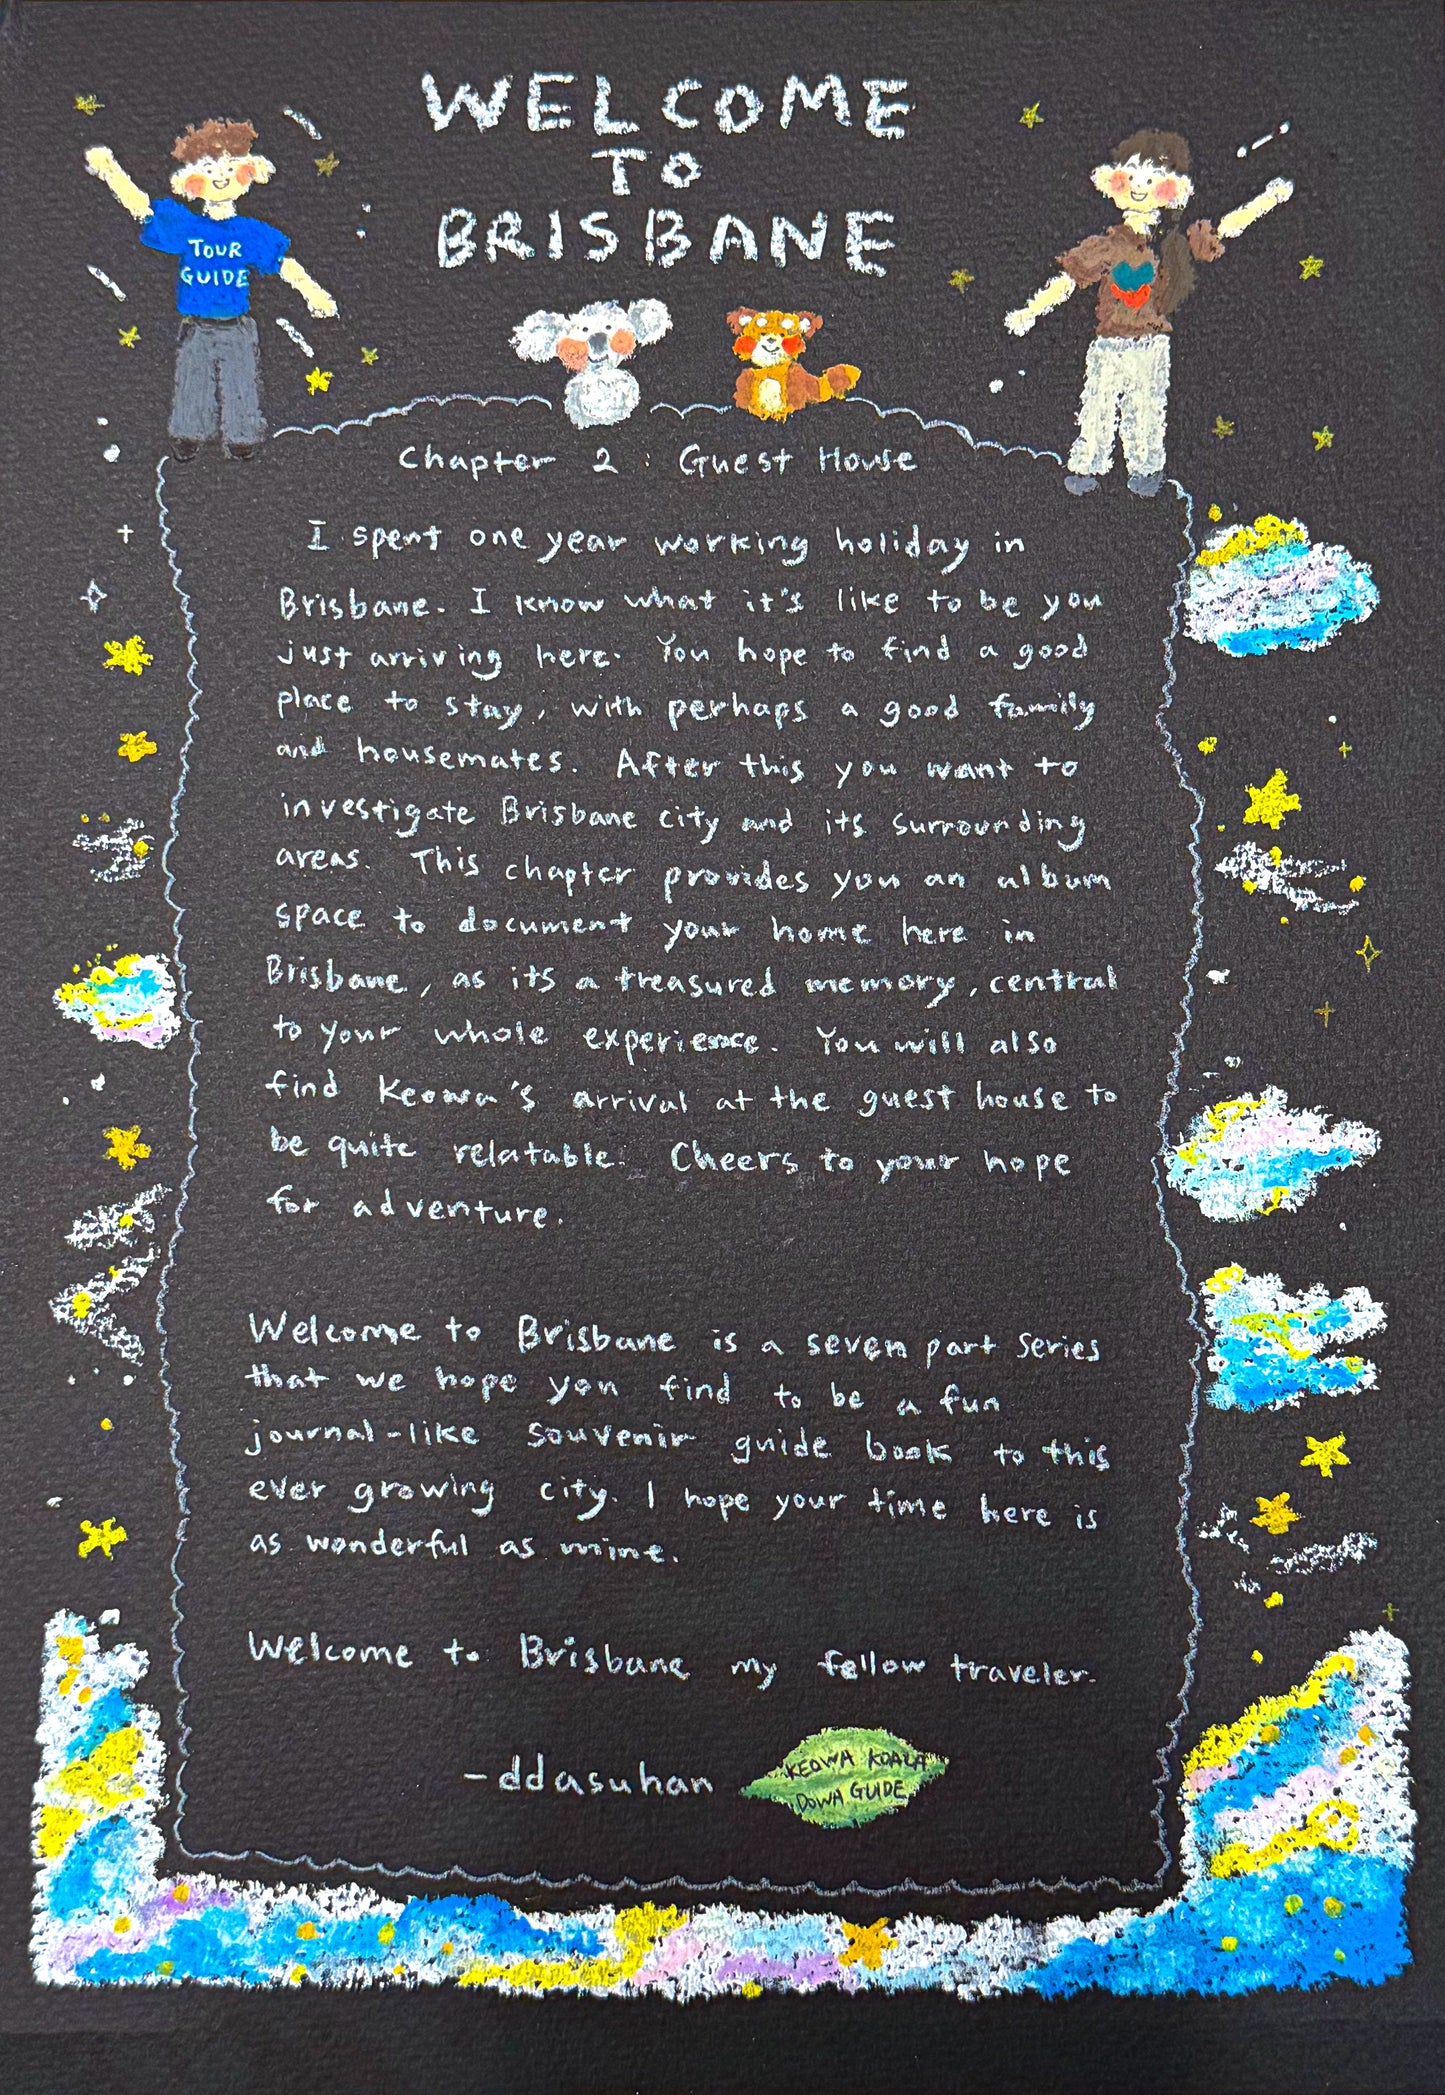 WELCOME
TO
BRISBANE
TOUR
GUIDE
Chapter 2 : Guest House
I spent one year working holiday in
Brisbane. I know what it's like to be you
just arriving here. You hope to find a good
place to stay, with perhaps a good family
and housemates. After this you want to
investigate Brisbane city and its surrounding
areas. This chapter provides you an album
space to document your home here in
Brisbane, as its a treasured memory, central
to your whole experience. You will also
find Keowa's arrival at the guest house to
be quite relatable. Cheers to your hope
for adventure.
Welcome to Brisbane is a seven part series
that we hope you find to be a fun
journal-like souvenir guide book to this
ever growing city. I hope your time here is
as wonderful as mine.
Welcome to Brisbane my fellow traveler.
-ddasuhan
KEOWA KOALA
DOWA GUIDE